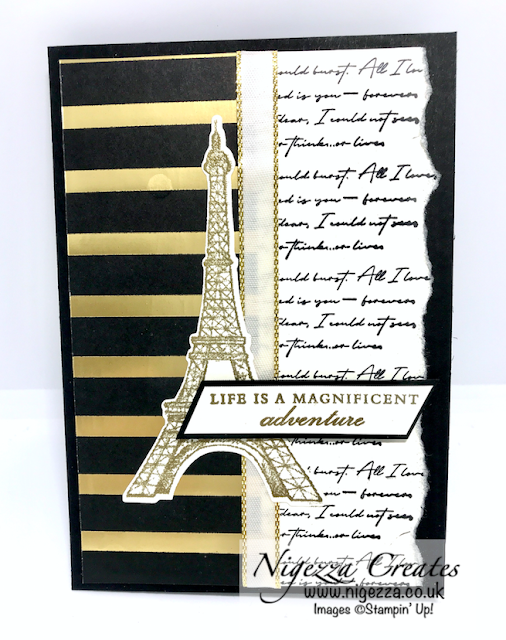 ould burst. All I lov
ed is you — forevers
dear, I could not sees
r thinks..or lives
ould burst. All I love,
ed is you — forevers
dear, I could not sees
r thinks..or lives
ould burst. All I love
ed is you — forevers
dear, I could not sees
r thinks..or lives
ould burst. All I lov
LIFE IS A MAGNIFICENT
adventure
r thinks..or lives
ould burst. All I lov
you — forevers
dear, I could not sees
r thinks..or lives
ould burst. All I lov
ed is you — forevers
Nigezza Creates
www.nigezza.co.uk
Images ©Stampin' Up!